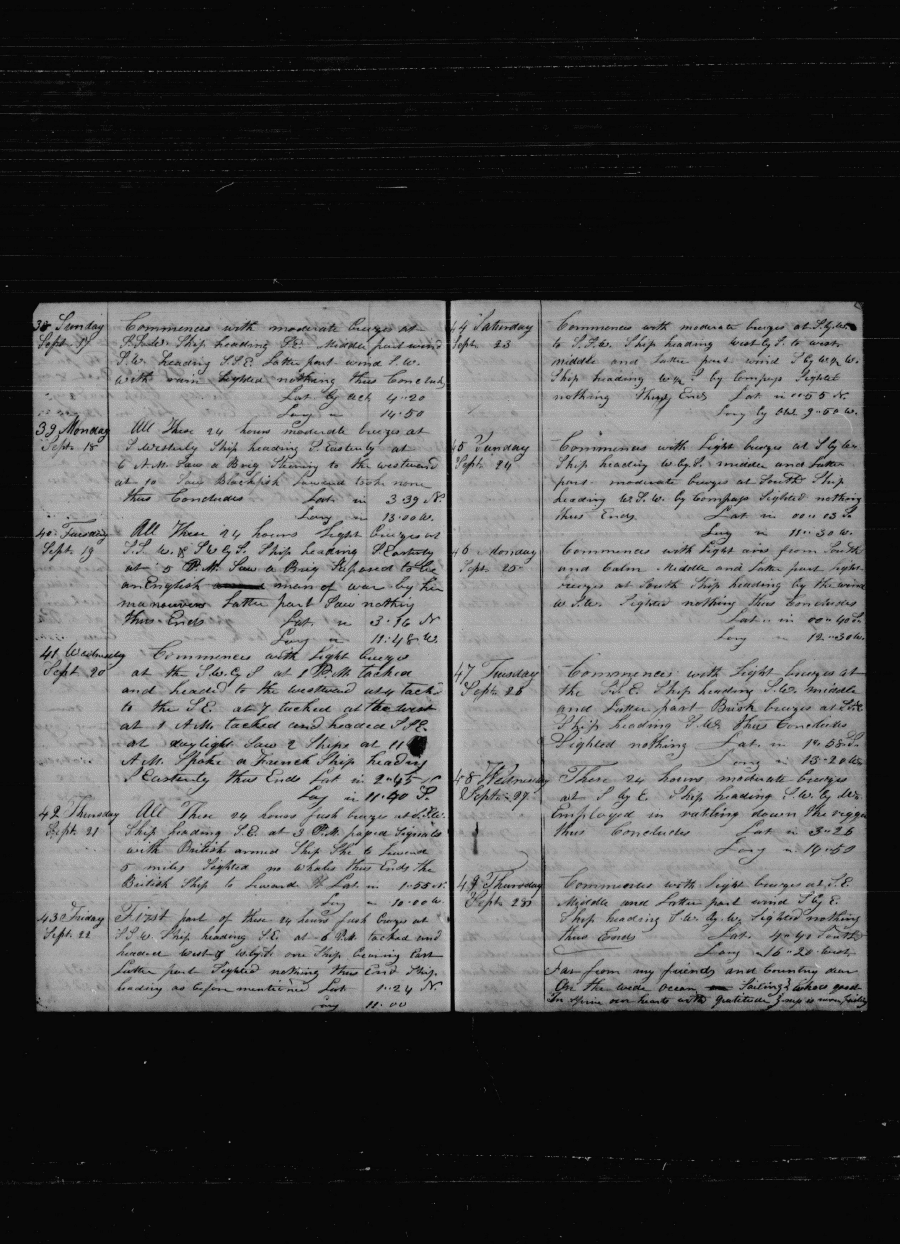 38 Sunday
Sept. 17
Commences with moderate breezes at
S.S.W. Ship heading S.E. Middle part wind
S.W. heading S.S.E. Latter part wind S.W.
with rain Sighted nothing thus Concludes
Lat by act 4-20
Long in 14-50
39 Monday
Sept. 18
All These 24 hours moderate breezes at
S Westerly Ship heading S. Easterly at
6 A.M. Saw a Brig Stering to the westward
at 10 Saw Blackfish Lowered took none
thus Concludes Lat in 3-39 N
Long in 13-00 W.
40 Tuesday
Sept. 19
All These 24 hours light breezes at
S.S.W. & S.W.by S. Ship heading S Easterly
at 5 P.M. Saw a Brig Suposed to be
an English man of war by her
manouvers Latter part Saw nothing
thus Ends Lat in 3-36 N
Long in 12-48 W.
41 Wednesday
Sept 20
Commences with light breezes
at the S.W.by S at 1 P.M. tacked
and headed to the westward at 4 tack'd
to the S.E. at 7 tacked at the west
at 1 A.M. tacked and headed S.S.E.
at daylight Saw 2 Ships at 11
A.M. Spoke a French Ship heading
S Easterly thus Ends Lat in 2-45 N
Long in 11-50
42 Thursday
Sept. 21
All These 24 hours fresh breezes at S.S.W.
Ship heading S.E. at 3 P.M. paged Signals
with British armed Ship She to Leward
5 miles Sighted no Whales thus Ends the
British Ship to Leward Lat in 1-55 N.
Long in 10-00 W
43 Friday
Sept. 22
First part of these 24 hours fresh breeze at
S.S.W. Ship heading S.E. at 6 P.M. tacked and
headed West & W.by S. one Ship bearing East
Latter part Sighted nothing thus End Ship
heading as before mentioned Lat 1-24 N.
Long 11-00
44 Saturday
Sept. 23
Commences with moderate breezes at S.by W.
to S.S.W. Ship heading West by S. to west
middle and Latter part wind S by W W.
Ship heading W S by Compass Sighted
nothing thus Ends Lat in 0-55 N.
Long by Obs 9-50 W.
45 Sunday
Sept. 24
Commences with light breezes at S by W
Ship heading W by S. middle and Latter
part moderate breezes at South Ship
heading W.S.W. by Compass Sighted nothing
thus Ends Lat in 00-03 S.
Long in 11-30 W.
46 Monday
Sept. 25
Commences with light airs from South
and Calm Middle and Latter part light
breezes at South Ship heading by the wind
W.S.W. Sighted nothing thus Concludes
Lat in 00-40 S
Long in 12-30 W.
47 Tuesday
Sept 26
Commences with light breezes at
the S.S.E. Ship heading S.W. middle
and Latter part Brisk breezes at
Ship heading S.W. thus Concludes
Sighted nothing Lat in 1-58 S.
Long in 13-20 W.
48 Wednesday
Sept. 27
These 24 hours moderate breezes
at S by E. Ship heading S.W. by W.
Employed in ratling down the riggin
thus Concludes Lat in 3-26
Long in 14-50
49 Thursday
Sept. 28
Commences with light breezes at S.E.
Middle and Latter part wind S by E.
Ship heading S.W. by W. Sighted nothing
thus Ends Lat. 4-41 South
Long in 16-20 West
Far from my friends and Country dear
On the wide Ocean Sailing
In Spire our hearts with gratitude